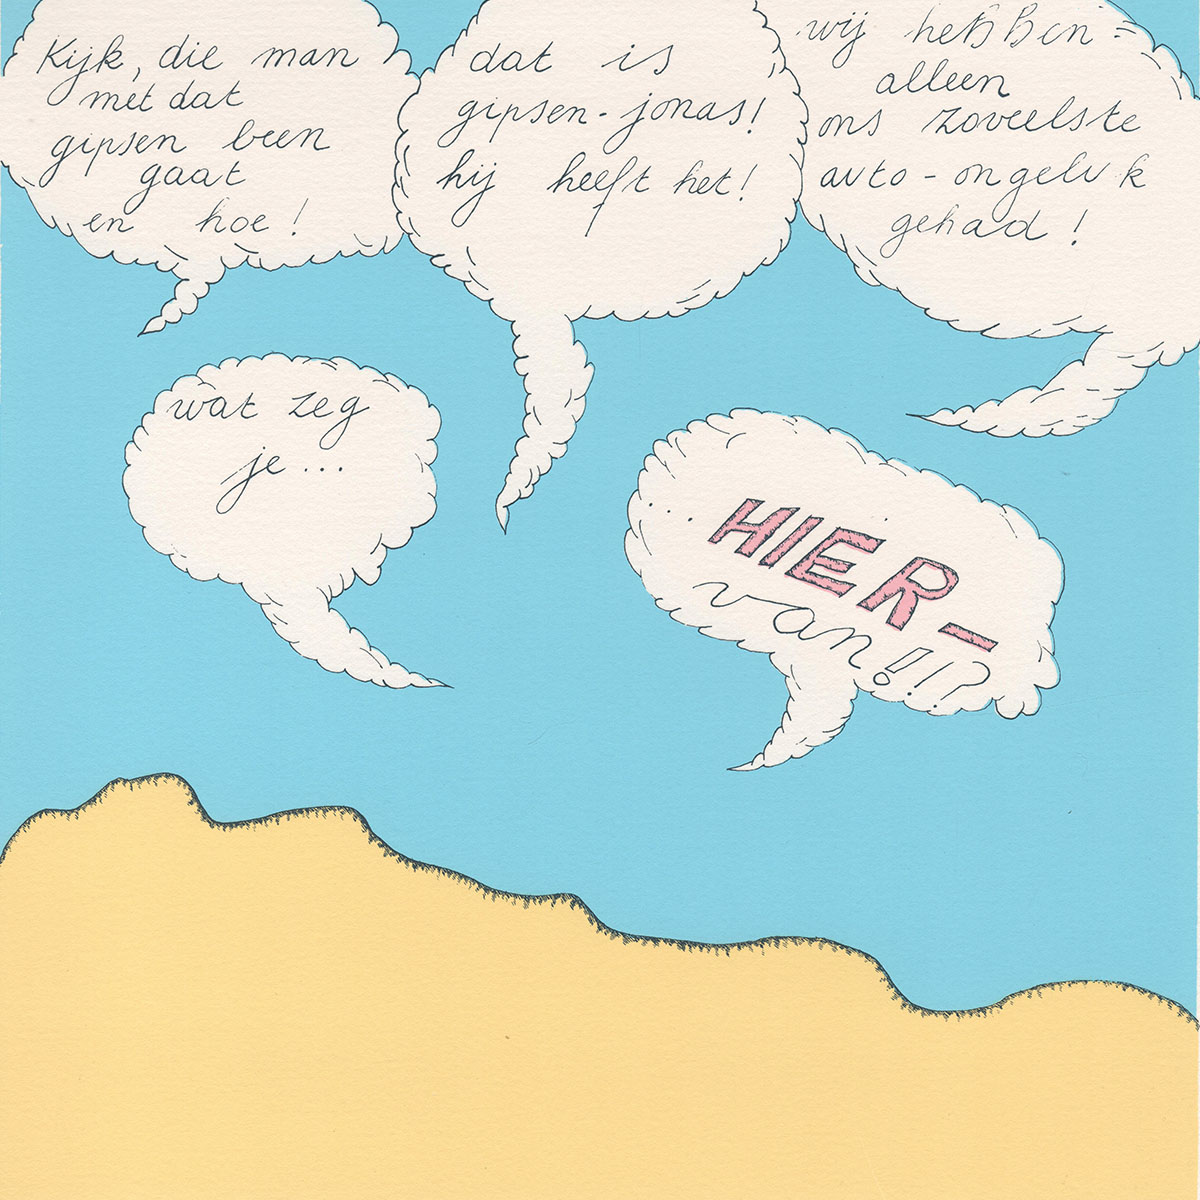 Kijk, die man
met dat
gipsen been
gaat
en hoe!
dat is
gipsen-jonas!
hij heeft het!
wij hebben
alleen
ons zoveelste
auto-ongeluk
gehad!
wat zeg
je...
... HIER-
van!!!?